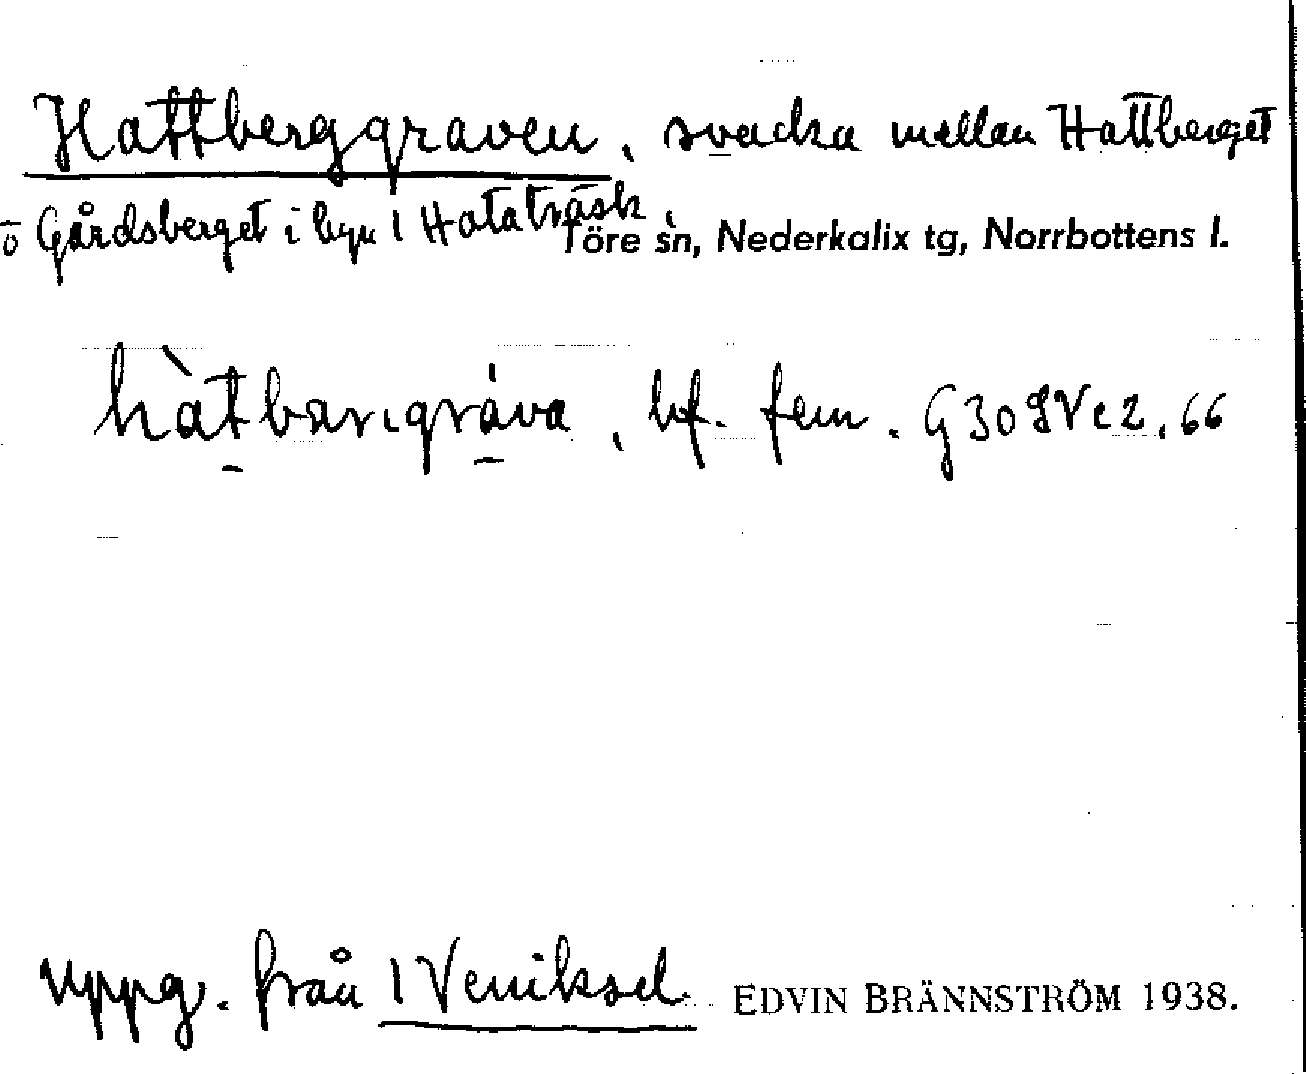 Hattberggraven, svacka mellan Hattberget
o Gårdsberget i byn 1 Hataträsk,
Töre sn, Nederkalix tg, Norrbottens l.
hàtbarιgráva, bf. fem. G30SVc2.66
uppg. från 1 Veniksel. EDVIN BRÄNNSTRÖM 1938.